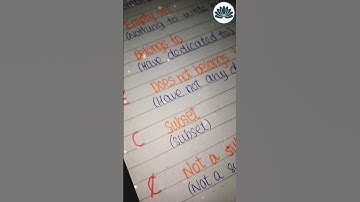 Empty set
(Nothing to write
Belongs to
(Have dedicated to)
Does not belongs
(Have not any d
⊂ Subset
(subset)
⊄ Not a su
(Not a s